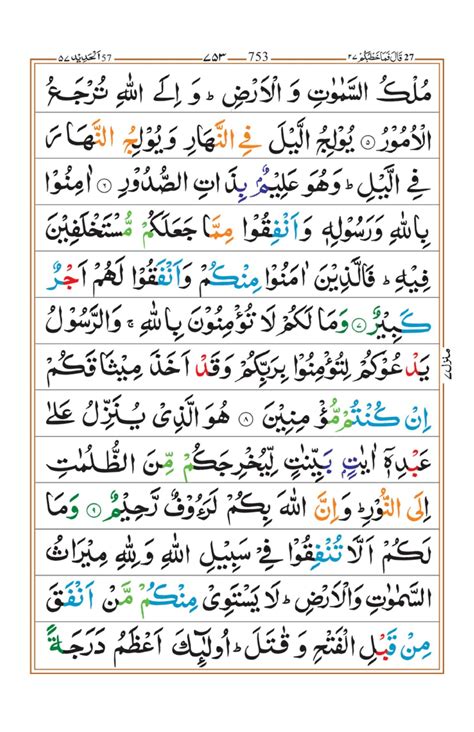 57 اَلْحَدِيْد ٥٧ ٧٥٣ 753 27 قَالَ فَمَا خَطْبُكُمْ ٢٧
مُلْكُ السَّمٰوٰتِ وَ الْاَرْضِ ؕ وَ اِلَى اللّٰهِ تُرْجَعُ
الْاُمُوْرُ ۝۵ يُوْلِجُ الَّيْلَ فِي النَّهَارِ وَ يُوْلِجُ النَّهَارَ
فِي الَّيْلِ ؕ وَهُوَ عَلِيْمٌۢ بِذَاتِ الصُّدُوْرِ ۝۶ اٰمِنُوْا
بِاللّٰهِ وَرَسُوْلِهٖ وَ اَنْفِقُوْا مِمَّا جَعَلَكُمْ مُّسْتَخْلَفِيْنَ
فِيْهِ ؕ فَالَّذِيْنَ اٰمَنُوْا مِنْكُمْ وَ اَنْفَقُوْا لَهُمْ اَجْرٌ
كَبِيْرٌ ۝۷ وَمَا لَكُمْ لَا تُؤْمِنُوْنَ بِاللّٰهِ ۚ وَالرَّسُوْلُ
يَدْعُوْكُمْ لِتُؤْمِنُوْا بِرَبِّكُمْ وَقَدْ اَخَذَ مِيْثَاقَكُمْ
اِنْ كُنْتُمْ مُّؤْمِنِيْنَ ۝۸ هُوَ الَّذِيْ يُنَزِّلُ عَلٰى
عَبْدِهٖۤ اٰيٰتٍۭ بَيِّنٰتٍ لِّيُخْرِجَكُمْ مِّنَ الظُّلُمٰتِ
اِلَى النُّوْرِ ؕ وَ اِنَّ اللّٰهَ بِكُمْ لَرَءُوْفٌ رَّحِيْمٌ ۝۹ وَمَا
لَكُمْ اَلَّا تُنْفِقُوْا فِيْ سَبِيْلِ اللّٰهِ وَ لِلّٰهِ مِيْرَاثُ
السَّمٰوٰتِ وَالْاَرْضِ ؕ لَا يَسْتَوِيْ مِنْكُمْ مَّنْ اَنْفَقَ
مِنْ قَبْلِ الْفَتْحِ وَ قٰتَلَ ؕ اُولٰٓئِكَ اَعْظَمُ دَرَجَةً
منزل ٧